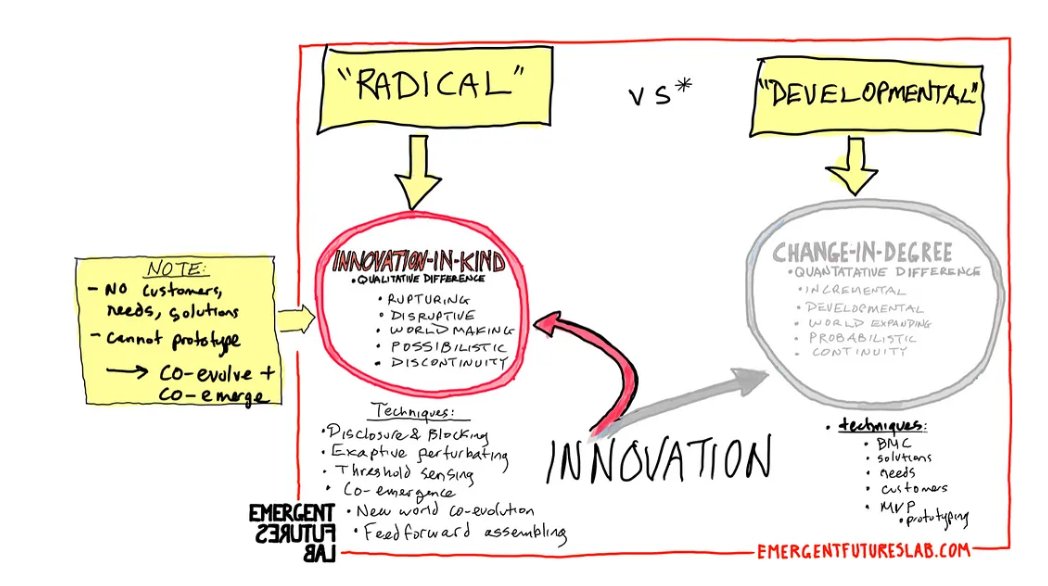 "RADICAL"
vs*
"DEVELOPMENTAL"
NOTE:
- No customers,
needs, solutions
- Cannot prototype
→ Co-evolve +
Co-emerge
INNOVATION-IN-KIND
• QUALITATIVE DIFFERENCE
• RUPTURING
• DISRUPTIVE
• WORLDMAKING
• POSSIBILISTIC
• DISCONTINUITY
CHANGE-IN-DEGREE
• QUANTATATIVE DIFFERENCE
• INCREMENTAL
• DEVELOPMENTAL
• WORLD EXPANDING
• PROBABILISTIC
• CONTINUITY
INNOVATION
Techniques:
• Disclosure & Blocking
• Exaptive perturbating
• Threshold sensing
• Co-emergence
• New world co-evolution
• Feedforward assembling
• techniques:
• BMC
• solutions
• needs
• customers
• MVP
• prototyping
EMERGENT
FUTURES
LAB
EMERGENTFUTURESLAB.COM